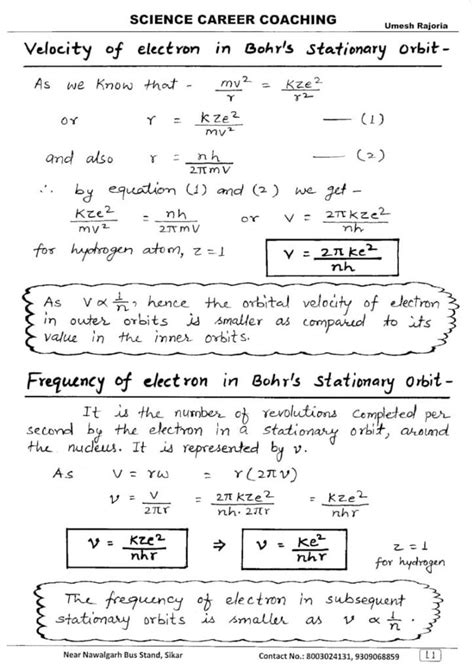 SCIENCE CAREER COACHING
Umesh Rajoria
Velocity of electron in Bohr's Stationary Orbit-
As we know that - mv²/r = kze²/r²
or r = kze²/mv² —— (1)
and also r = nh/2πmv —— (2)
∴ by equation (1) and (2) we get -
kze²/mv² = nh/2πmv or v = 2πkze²/nh
for hydrogen atom, z=1 v = 2πke²/nh
As v ∝ 1/n, hence the orbital velocity of electron
in outer orbits is smaller as compared to its
value in the inner orbits.
Frequency of electron in Bohr's Stationary Orbit-
It is the number of revolutions completed per
second by the electron in a stationary orbit, around
the nucleus. It is represented by ν.
As v = rω = r(2πν)
ν = v/2πr = 2πkze²/nh·2πr = kze²/nhr
ν = kze²/nhr ⇒ ν = ke²/nhr z=1
for hydrogen
The frequency of electron in subsequent
stationary orbits is smaller as ν ∝ 1/n.
Near Nawalgarh Bus Stand, Sikar Contact No.: 8003024131, 9309068859 11